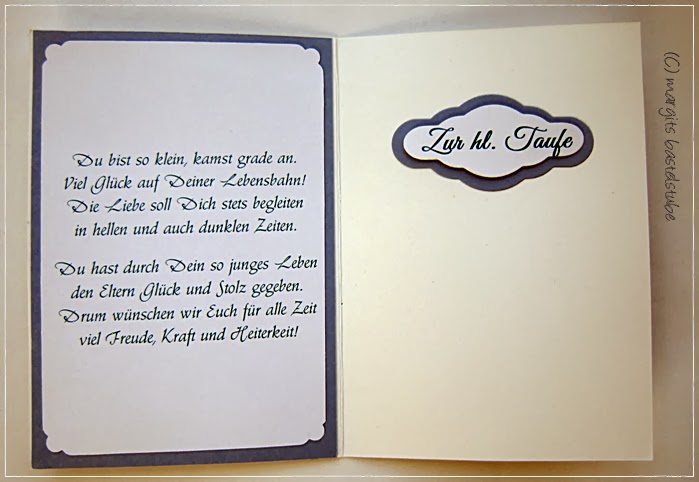 Du bist so klein, kamst grade an.
Viel Glück auf Deiner Lebensbahn!
Die Liebe soll Dich stets begleiten
in hellen und auch dunklen Zeiten.
Du hast durch Dein so junges Leben
den Eltern Glück und Stolz gegeben.
Drum wünschen wir Euch für alle Zeit
viel Freude, Kraft und Heiterkeit!
Zur hl. Taufe
(C) margits bastelstube